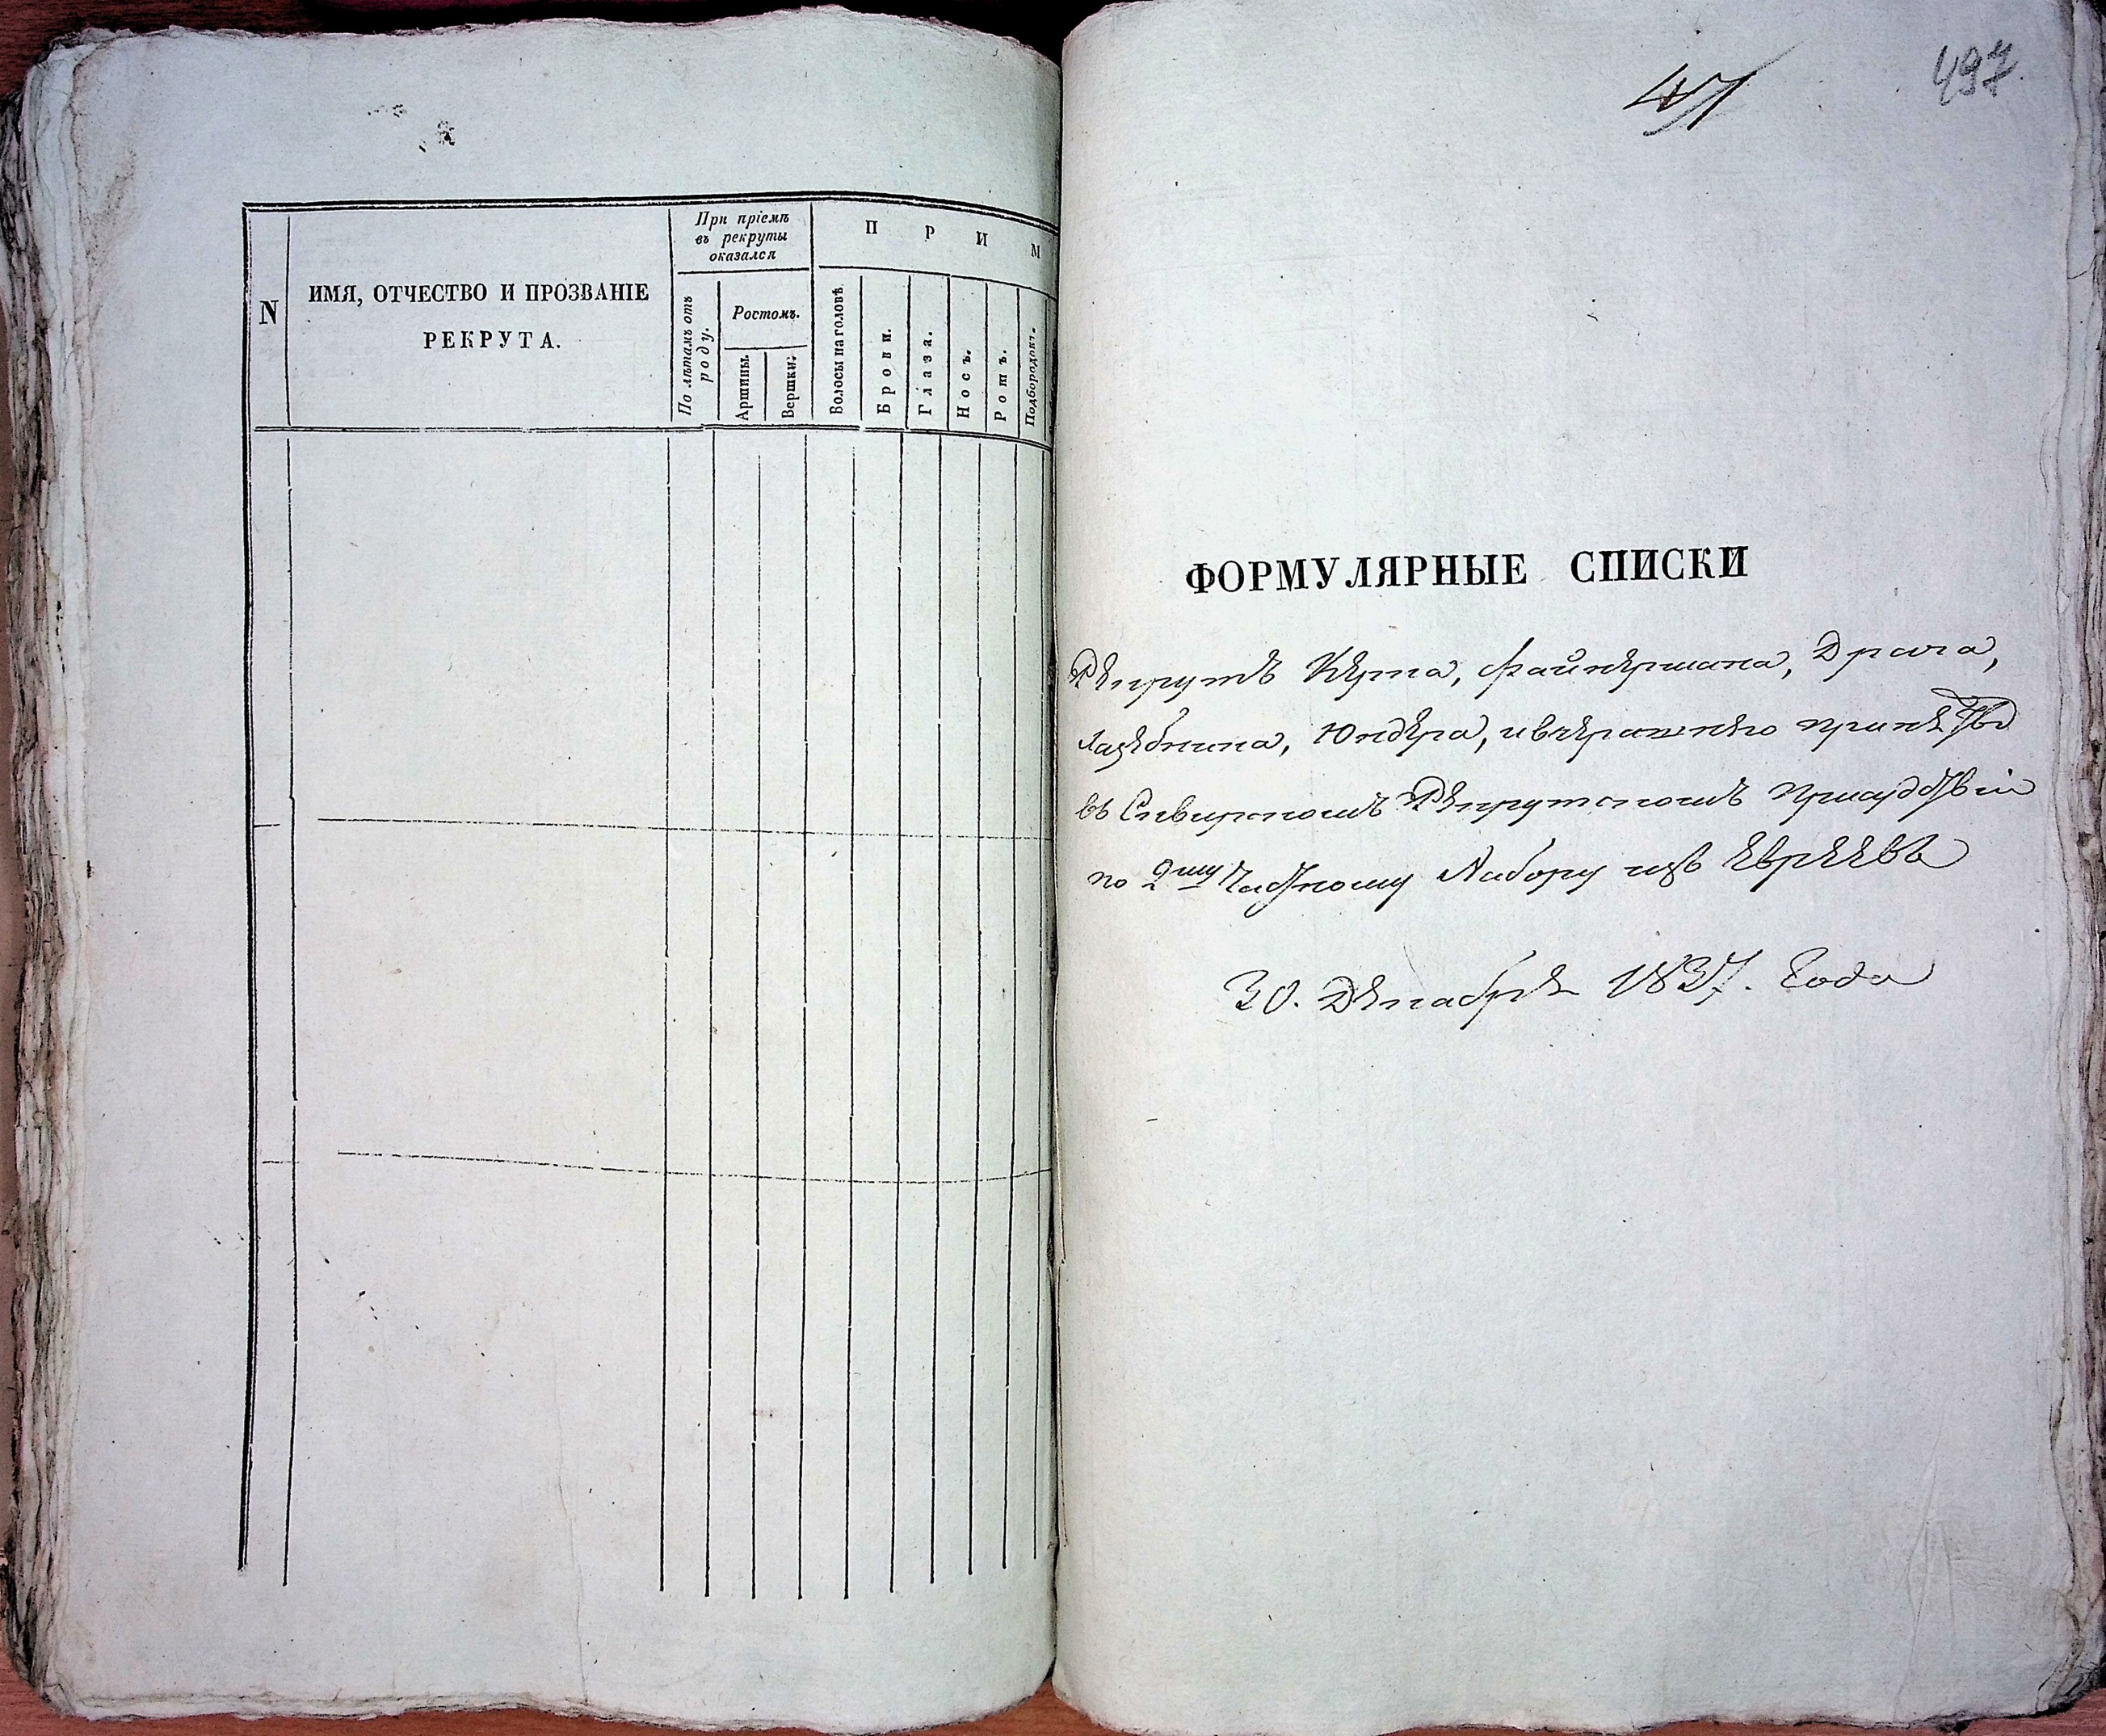 N
ИМЯ, ОТЧЕСТВО И ПРОЗВАНІЕ
РЕКРУТА.
При пріемѣ
въ рекруты
оказался
По лѣтамъ отъ
роду.
Ростомъ.
Аршины.
Вершки.
П Р И М
Волосы на головѣ.
Брови.
Глаза.
Носъ.
Ротъ.
Подбородокъ.
47
497.
ФОРМУЛЯРНЫЕ СПИСКИ
Рекрутъ Керпа, Файнермана, Драча,
Лазебника, Юндера,
въ Сквирскомъ Рекрутскомъ Присудствіи
по 2му Частному Набору изъ Евреевъ
30. Декабря 1837. Года